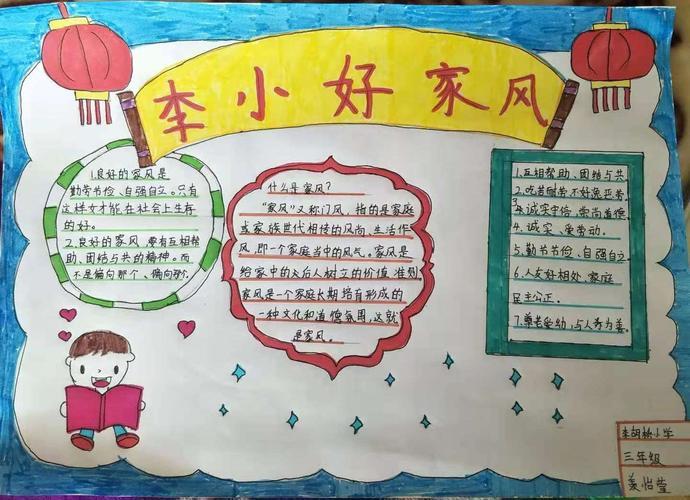 李小好家风
1.良好的家风是
勤劳节俭、自强自立。只有
这样女才能在社会上生存
的好。
2.良好的家风,要有互相帮
助、团结与共的精神。而
不是偏向那个、偏向那个
什么是家风?
“家风”又称门风,指的是家庭
或家族世代相传的风尚、生活作
风,即一个家庭当中的风气。家风是
给家中的后人树立的价值准则
家风是一个家庭长期培育形成的
一种文化和道德氛围,这就
是家风。
1.互相帮助、团结与共
2.吃苦耐劳不好逸恶劳
3.诚实守信、崇尚道德
4.诚实、爱劳动。
5.勤劳节俭、自强自立。
6.人友好相处、家庭
民主公正。
7.尊老爱幼,与人为善。
李胡桥小学
三年级
姜怡莹